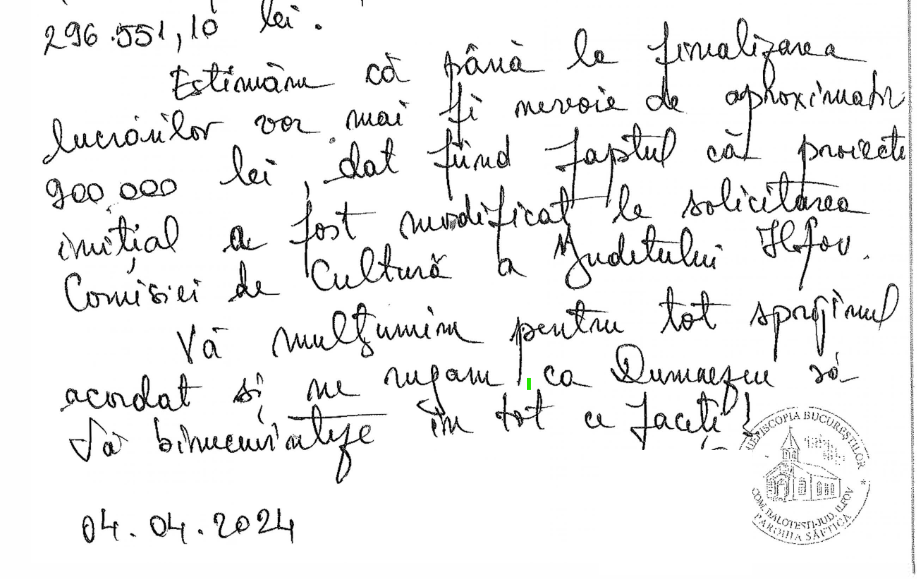 296.551,10 lei.
Estimăm că până la finalizarea
lucrărilor vor mai fi nevoie de aproximativ
900 000 lei, dat fiind faptul că proiectul
inițial a fost modificat la solicitarea
Comisiei de Cultură a Județului Ilfov.
Vă mulțumim pentru tot sprijinul
acordat și ne rugam, ca Dumnezeu să
Vă binecuvinteze în tot ce faceți!
04.04.2024
EPISCOPIA BUCUREȘTILOR
COM. BALOTEȘTI-JUD. ILFOV
PAROHIA SĂFTICA